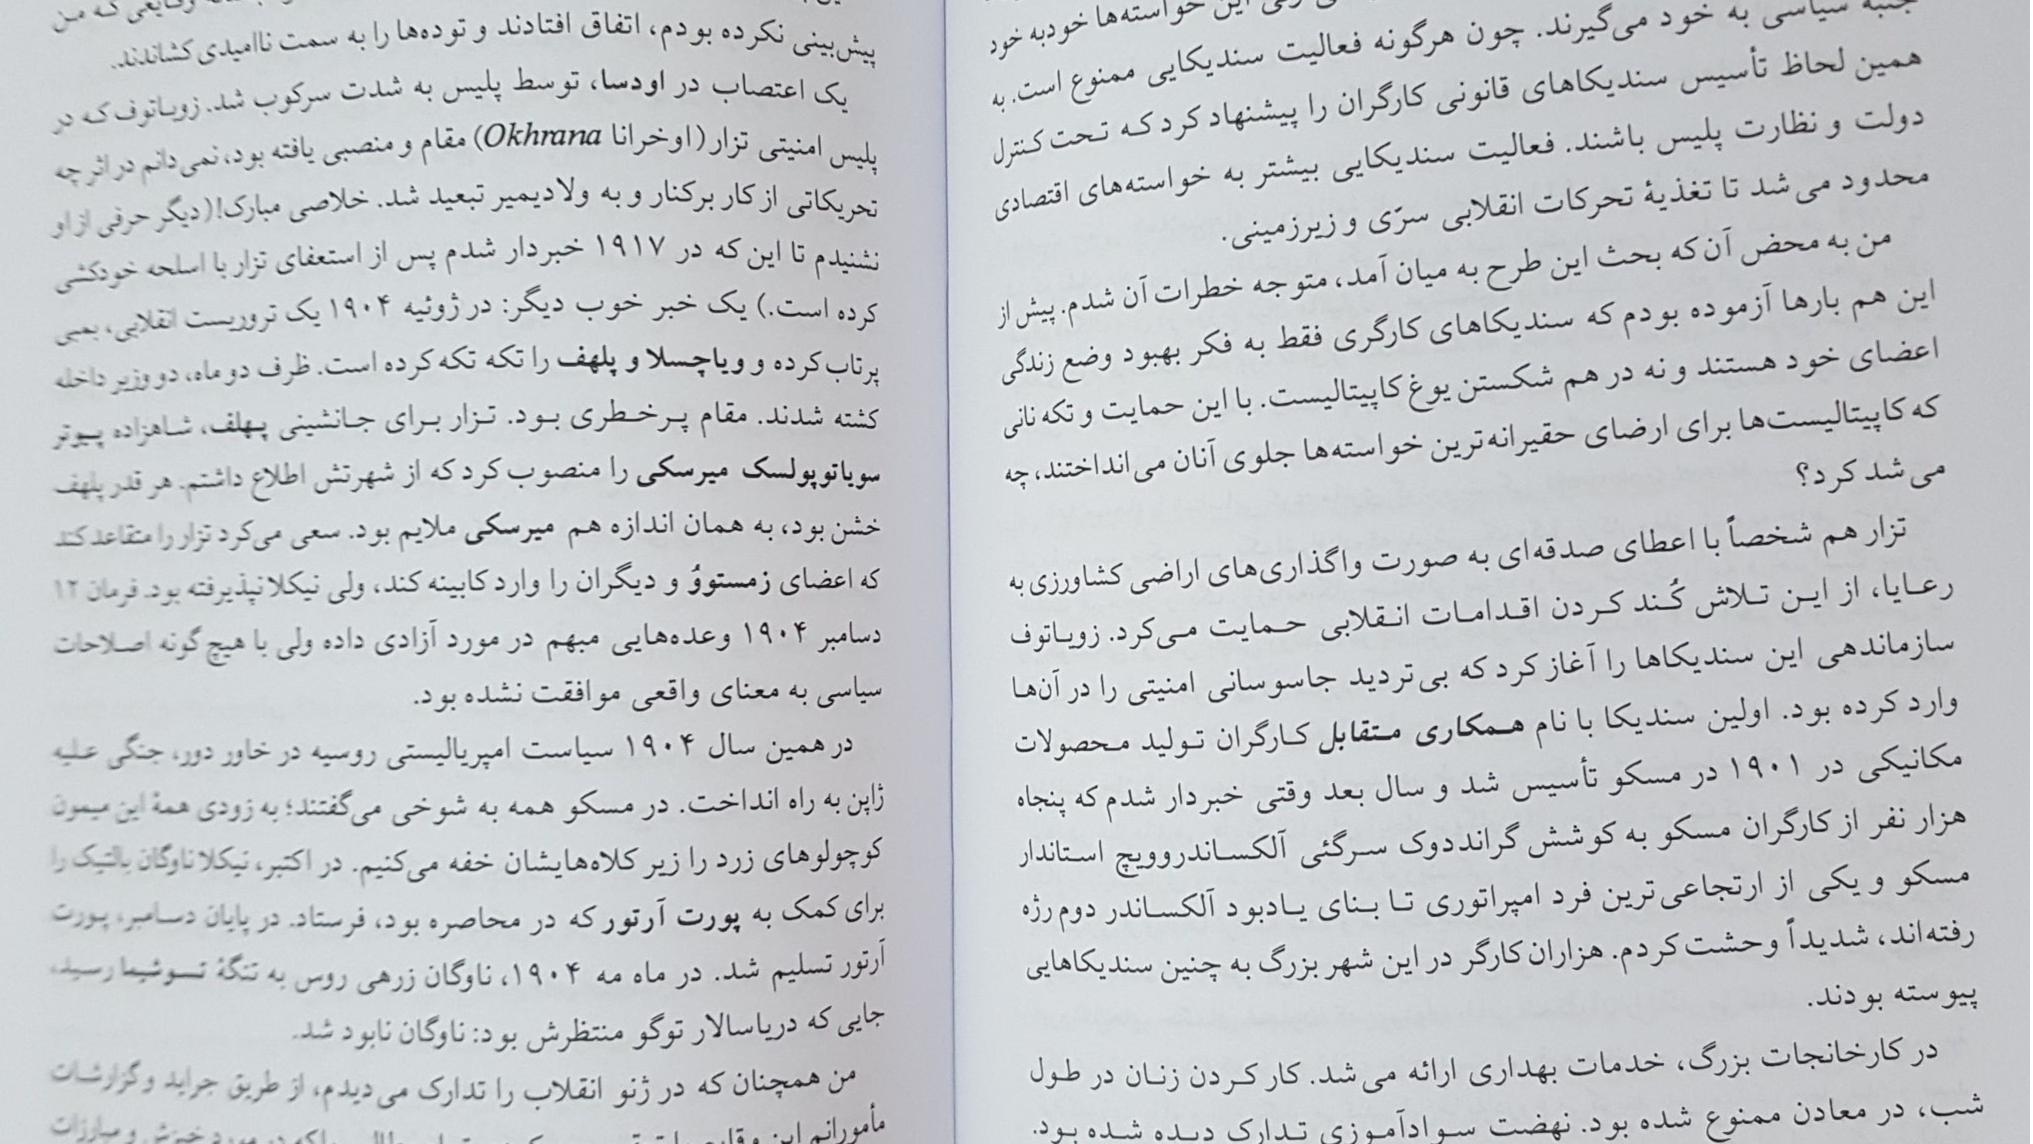 این خواسته‌ها خودبه خود
جنبه سیاسی به خود می‌گیرند. چون هرگونه فعالیت سندیکایی ممنوع است. به
همین لحاظ تأسیس سندیکاهای قانونی کارگران را پیشنهاد کرد که تحت کنترل
دولت و نظارت پلیس باشند. فعالیت سندیکایی بیشتر به خواسته‌های اقتصادی
محدود می‌شد تا تغذیهٔ تحرکات انقلابی سرّی و زیرزمینی.
من به محض آن که بحث این طرح به میان آمد، متوجه خطرات آن شدم. پیش از
این هم بارها آزموده بودم که سندیکاهای کارگری فقط به فکر بهبود وضع زندگی
اعضای خود هستند و نه در هم شکستن یوغ کاپیتالیست. با این حمایت و تکه نانی
که کاپیتالیست‌ها برای ارضای حقیرانه‌ترین خواسته‌ها جلوی آنان می‌انداختند، چه
می‌شد کرد؟
تزار هم شخصاً با اعطای صدقه‌ای به صورت واگذاری‌های اراضی کشاورزی به
رعایا، از این تلاش کُند کردن اقدامات انقلابی حمایت می‌کرد. زوباتوف
سازماندهی این سندیکاها را آغاز کرد که بی‌تردید جاسوسانی امنیتی را در آن‌ها
وارد کرده بود. اولین سندیکا با نام همکاری متقابل کارگران تولید محصولات
مکانیکی در ۱۹۰۱ در مسکو تأسیس شد و سال بعد وقتی خبردار شدم که پنجاه
هزار نفر از کارگران مسکو به کوشش گراند‌دوک سرگئی آلکساندروویچ استاندار
مسکو و یکی از ارتجاعی‌ترین فرد امپراتوری تا بنای یادبود آلکساندر دوم رژه
رفته‌اند، شدیداً وحشت کردم. هزاران کارگر در این شهر بزرگ به چنین سندیکاهایی
پیوسته بودند.
در کارخانجات بزرگ، خدمات بهداری ارائه می‌شد. کار کردن زنان در طول
شب، در معادن ممنوع شده بود. نهضت سوادآموزی تدارک دیده شده بود.
وقایعی که من
پیش‌بینی نکرده بودم، اتفاق افتادند و توده‌ها را به سمت ناامیدی کشاندند.
یک اعتصاب در اودسا، توسط پلیس به شدت سرکوب شد. زوباتوف که در
پلیس امنیتی تزار (اوخرانا Okhrana) مقام و منصبی یافته بود، نمی‌دانم در اثر چه
تحریکاتی از کار برکنار و به ولادیمیر تبعید شد. خلاصی مبارک! (دیگر حرفی از او
نشنیدم تا این که در ۱۹۱۷ خبردار شدم پس از استعفای تزار با اسلحه خودکشی
کرده است.) یک خبر خوب دیگر: در ژوئیه ۱۹۰۴ یک تروریست انقلابی، بمبی
پرتاب کرده و ویاچسلا و پلهف را تکه تکه کرده است. ظرف دو ماه، دو وزیر داخله
کشته شدند. مقام پرخطری بود. تزار برای جانشینی پهلف، شاهزاده پیوتر
سویاتوپولسک میرسکی را منصوب کرد که از شهرتش اطلاع داشتم. هر قدر پلهف
خشن بود، به همان اندازه هم میرسکی ملایم بود. سعی می‌کرد تزار را متقاعد کند
که اعضای زمستووُ و دیگران را وارد کابینه کند، ولی نیکلا نپذیرفته بود. فرمان ۱۲
دسامبر ۱۹۰۴ وعده‌هایی مبهم در مورد آزادی داده ولی با هیچ گونه اصلاحات
سیاسی به معنای واقعی موافقت نشده بود.
در همین سال ۱۹۰۴ سیاست امپریالیستی روسیه در خاور دور، جنگی علیه
ژاپن به راه انداخت. در مسکو همه به شوخی می‌گفتند؛ به زودی همهٔ این میمون
کوچولوهای زرد را زیر کلاه‌هایشان خفه می‌کنیم. در اکتبر، نیکلا ناوگان بالتیک را
برای کمک به پورت آرتور که در محاصره بود، فرستاد. در پایان دسامبر، پورت
آرتور تسلیم شد. در ماه مه ۱۹۰۴، ناوگان زرهی روس به تنگهٔ تسوشیما رسید،
جایی که دریاسالار توگو منتظرش بود: ناوگان نابود شد.
من همچنان که در ژنو انقلاب را تدارک می‌دیدم، از طریق جراید و گزارشات
مأمورانم این وقایع را